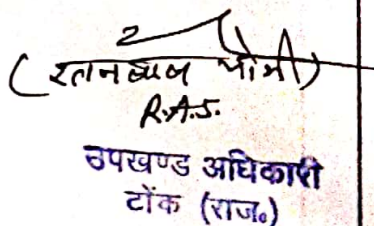 (रतनलाल योगी)
R.A.S.
उपखण्ड अधिकारी
टोंक (राज०)